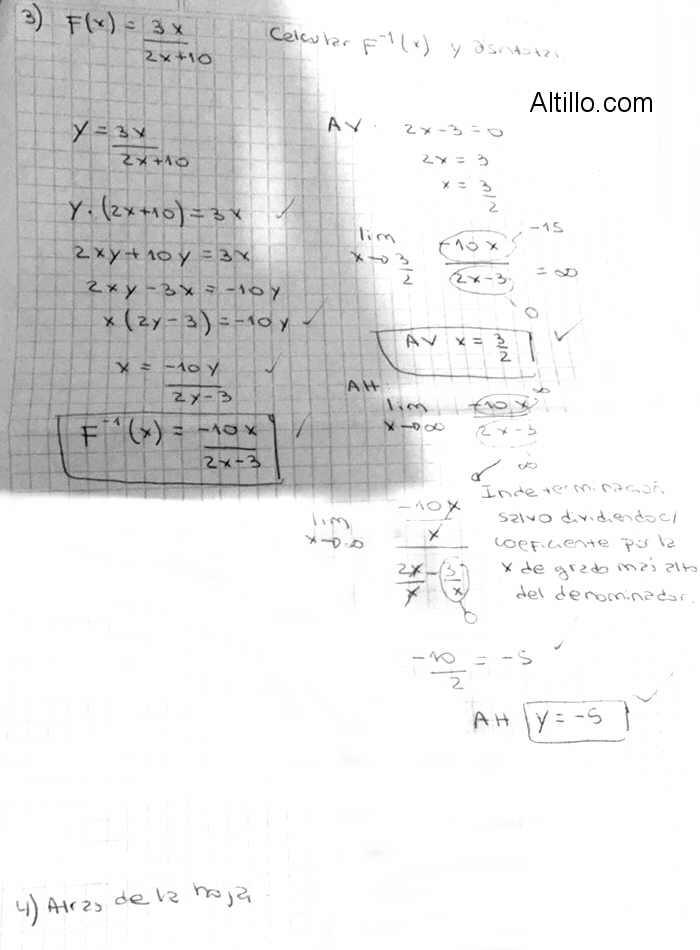 3) F(x) = 3x / 2x+10 Calcular F⁻¹(x) y asíntotas
Altillo.com
y = 3x / 2x+10
y · (2x+10) = 3x ✓
2xy + 10y = 3x
2xy - 3x = -10y
x(2y-3) = -10y ✓
x = -10y / 2y-3 ✓
F⁻¹(x) = -10x / 2x-3 ✓
AV. 2x-3=0
2x = 3
x = 3/2
lim x→3/2 -10x / 2x-3 = ∞
-15
0
AV x = 3/2 ✓
AH.
lim x→∞ -10x / 2x-3
∞
∞
✓ Indeterminación
salvo dividiendo c/
coeficiente por la
x de grado más alto
del denominador.
lim x→∞ -10x/x / 2x/x - 3/x
0
-10/2 = -5 ✓
AH y = -5 ✓
4) Atrás de la hoja